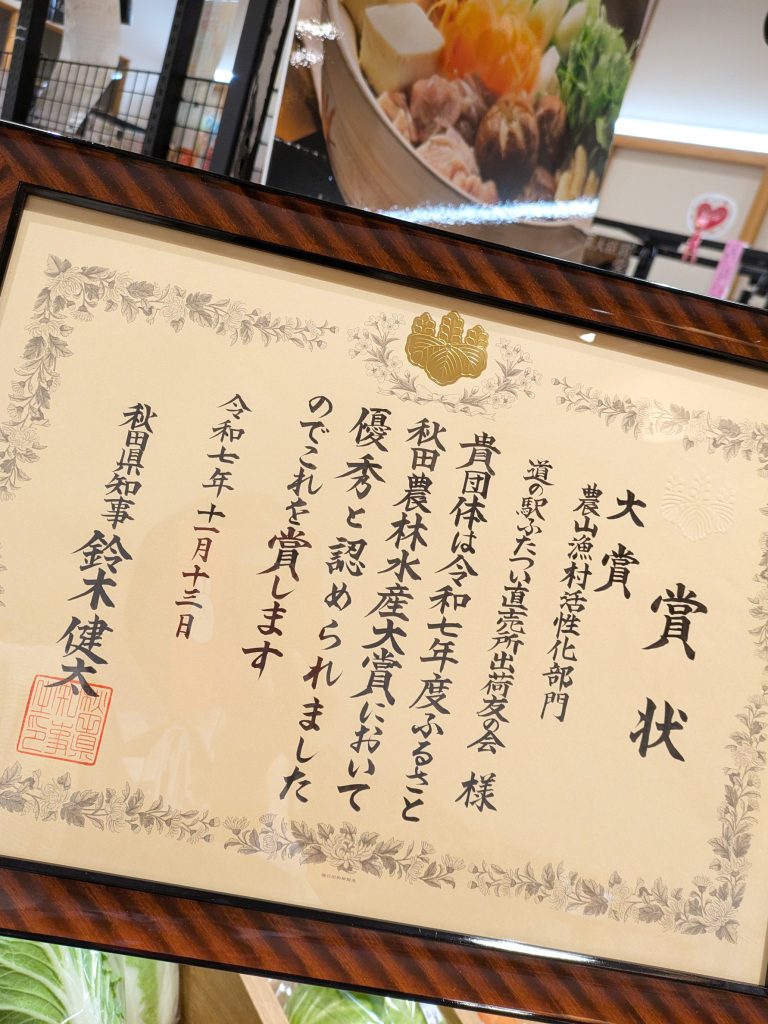 賞状
大賞
農山漁村活性化部門
道の駅ふたつい直売所出荷友の会 様
貴団体は令和七年度ふるさと
秋田農林水産大賞において
優秀と認められました
のでこれを賞します
令和七年十一月十三日
秋田県知事 鈴木健太